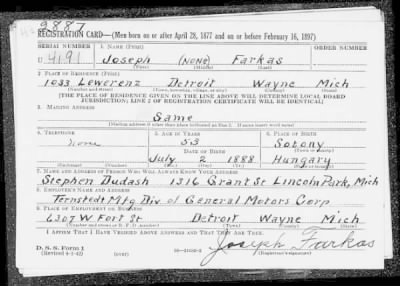 2887
REGISTRATION CARD—(Men born on or after April 28, 1877 and on or before February 16, 1897)
SERIAL NUMBER 1. NAME (Print) ORDER NUMBER
U 4191 Joseph (NONE) Farkas
(First) (Middle) (Last)
2. PLACE OF RESIDENCE (Print)
1033 Lewerenz Detroit Wayne Mich
(Number and street) (Town, township, village, or city) (County) (State)
[THE PLACE OF RESIDENCE GIVEN ON THE LINE ABOVE WILL DETERMINE LOCAL BOARD
JURISDICTION; LINE 2 OF REGISTRATION CERTIFICATE WILL BE IDENTICAL]
3. MAILING ADDRESS
Same
(Mailing address if other than place indicated on line 2. If same insert word same)
4. TELEPHONE 5. AGE IN YEARS 6. PLACE OF BIRTH
none 53 Sopony
DATE OF BIRTH (Town or county)
July 2 1888 Hungary
(Exchange) (Number) (Mo.) (Day) (Yr.) (State or country)
7. NAME AND ADDRESS OF PERSON WHO WILL ALWAYS KNOW YOUR ADDRESS
Stephen Dudash 1316 Grant St Lincoln Park, Mich
8. EMPLOYER'S NAME AND ADDRESS
Ternstedt Mfg Div of General Motors Corp
9. PLACE OF EMPLOYMENT OR BUSINESS
6307 W Fort St Detroit Wayne Mich
(Number and street or R. F. D. number) (Town) (County) (State)
I AFFIRM THAT I HAVE VERIFIED ABOVE ANSWERS AND THAT THEY ARE TRUE.
D. S. S. Form 1
(Revised 4-1-42) (over) Joseph Farkas
(Registrant's signature)